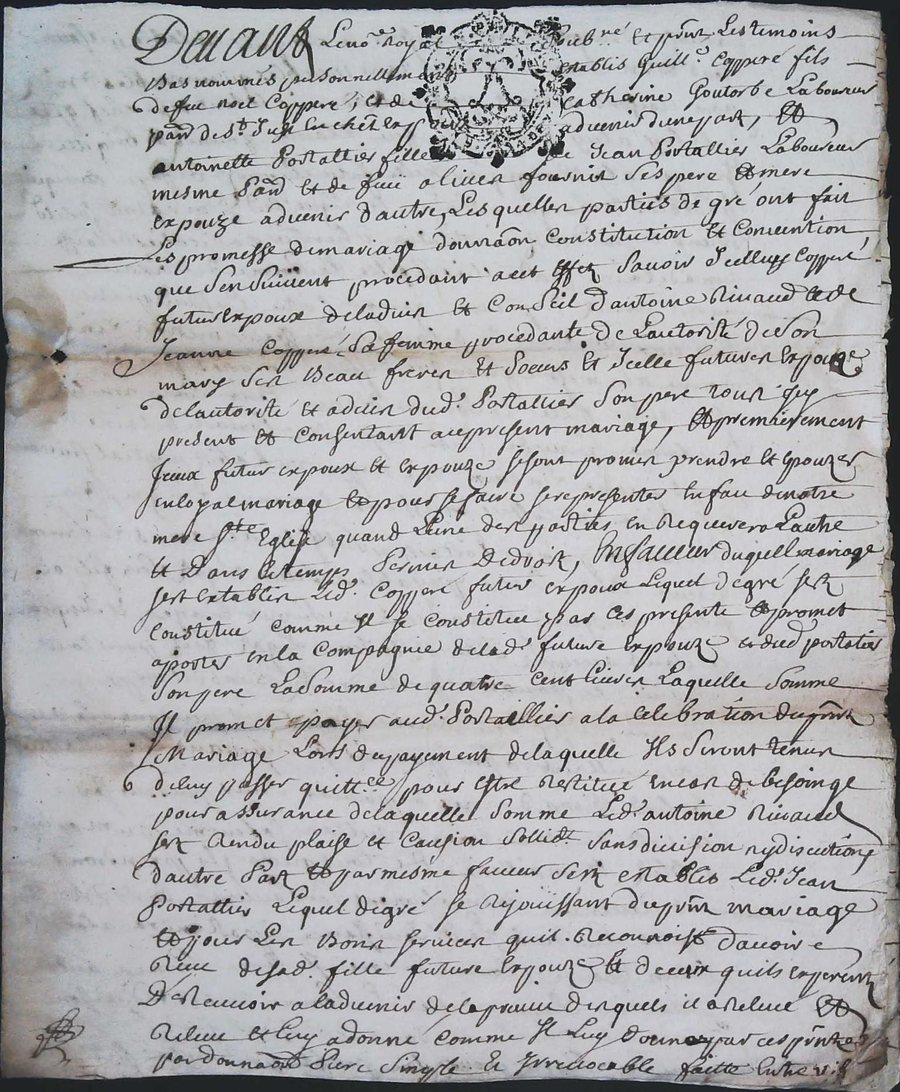 Devant Le no.e Royal soub.né et p̃nt Les temoins
bas nommés personnellement establis Guill.e Copperé fils
de feu noel Copperé, et de Catherine Goutorbe Laboureur
par.d de S.t Just en chēt espoux advenir d'une part, Et
antoinette Portallier fille de Jean Portallier Laboureur
mesme Par.d et de fuë oliven fournir ses pere et mere
expouze advenir d'autre, Lesquellen parties de gré ont fait
Les promesse de mariage donnaõn Constitution et Convention
que s'ensuivent procédant a cet effet savoir Icelluy Copperé
futur expoux de ladvis et Conseil d'antoine Rivaud et de
Jeanne Copperé sa femme procédante de L'autorité de son
mary sen beau freren et soeurs et Icelle futuren expouze
de l'autorité et advis dud. Portallier son pere tous Icy
present et Consentant au present mariage, Et premierement
Iceux futur expoux et expouze se sont promis prendre et epouzer
en loyal mariage et pour se faire se representer en face de notre
mere S.te Eglise quand L'une den parties en Requerera L'autre
et Dans le temps permis De droit, En faveur duquel mariage
sert establir Led. Copperé futur expoux Lequel de gré sest
Constitué comme Il se Constitue par ces presente et promet
aporter en la Compagnie de lad. future expouze et dud. portalier
son pere La somme de quatre cent Livren Laquelle somme
Il promet payer aud. Portallier a la Celebration du p̃nt
Mariage Lors du payement de laquelle Ils seront tenur
de luy passer quitt.ce pour estre Restituée en cas de besoinge
pour assurance de laquelle somme Led. antoine Rivaud
sert Rendu plaise et Caution sollid.e sans division ny discution
d'autre Part et par mesme faveur sert establis Led. Jean
Portallier Lequel de gré se rejouissant du p̃nt mariage
et pour Les bonir services quil Reconnoist d'avoir
Receu de sad. fille future expouze et de ceux quils esperent
De Recevoir a ladvenir de la preuve desquels il a Relevé Et
Releve et Luy a donné comme Il Luy donne par ces p̃ntes
par donnaõn Pure Simple et Irrevocable faitte entre vifs